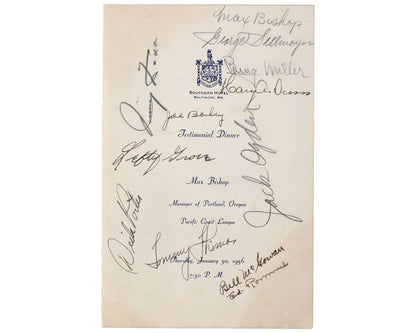 Max Bishop
George Stllmayer
Miller
Harry D.
SOUTHERN HOTEL
BALTIMORE, MD.
Jimmy Foxx
Joe Boley
Jack Ogden
Testimonial Dinner
Lefty Grove
Max Bishop
Manager of Portland, Oregon
Pacific Coast League
Dick Porter
Tommy Thomas
Thursday, January 30, 1936
7:30 P. M.
Bill McGowan
Ed. Rommel